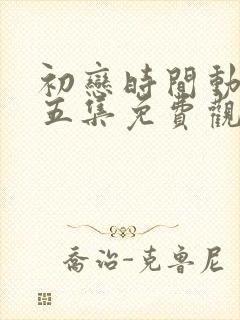 初戀時間動
五集免費觀
喬治-克魯尼